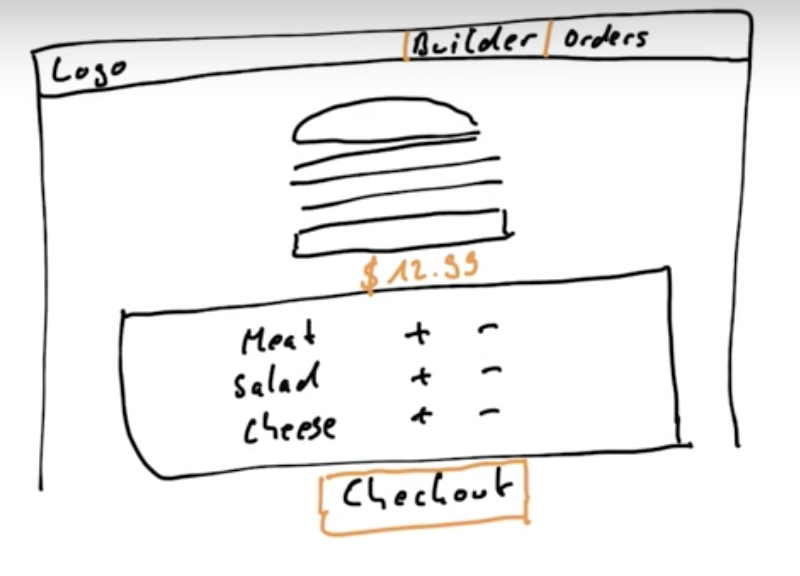 Logo Builder Orders
$12.99
Meat + -
Salad + -
Cheese + -
Checkout